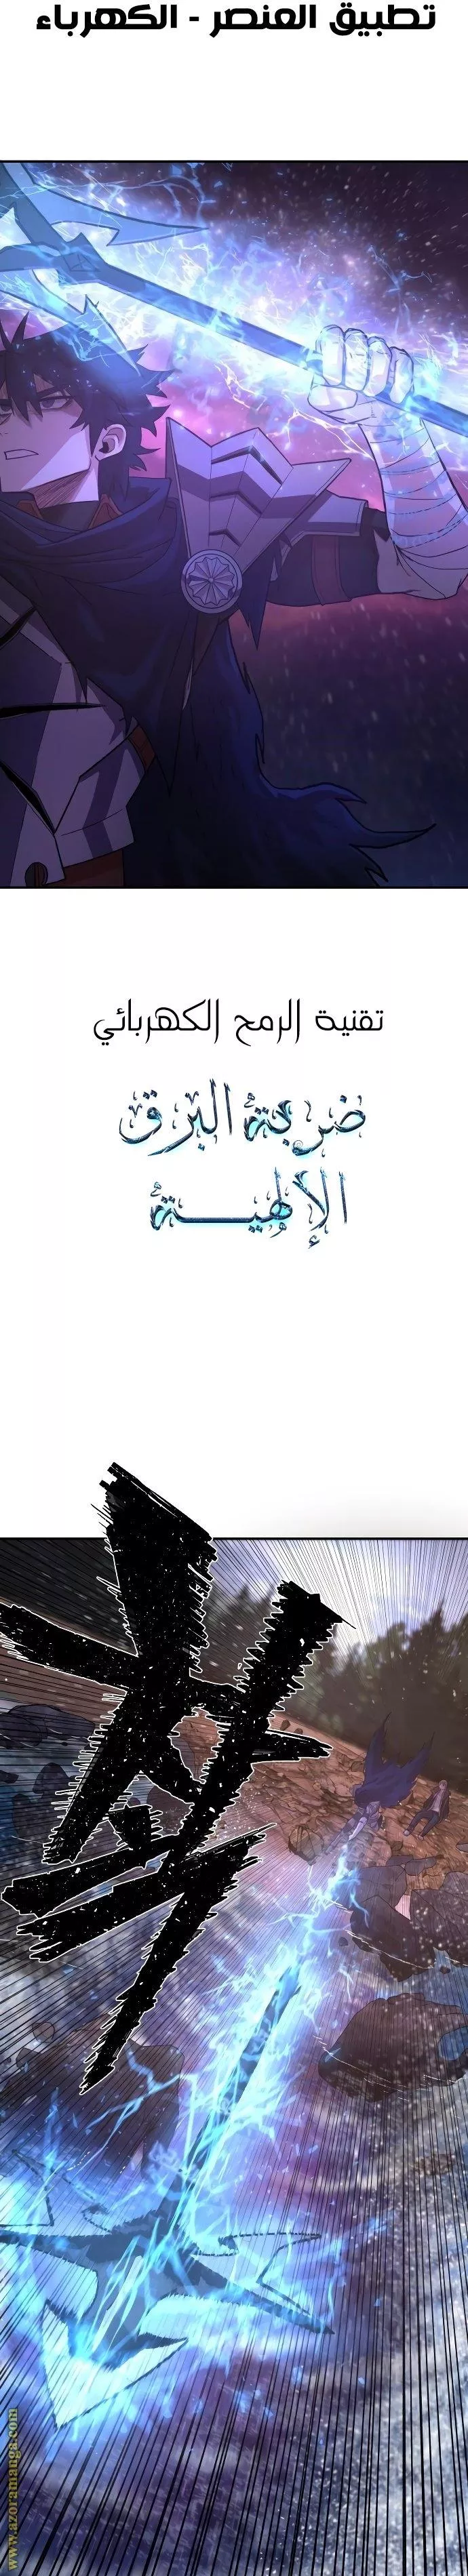 تطبيق العنصر - الكهرباء
تقنية الرمح الكهربائي
ضربة البرق
الإلهية
www.azoramanga.com